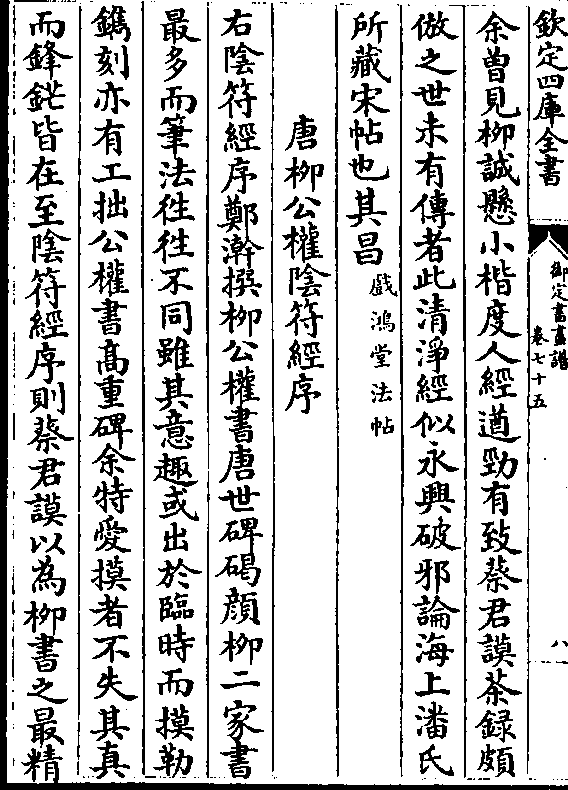 欽定四庫全書
御定書畫譜
卷七十五
八
余曾見柳誠懸小楷度人經遒勁有致蔡君謨茶録頗
倣之世未有傳者此清淨經似永興破邪論海上潘氏
所藏宋帖也其昌戲鴻堂法帖
唐柳公權陰符經序
右陰符經序鄭澣撰柳公權書唐世碑碣顔柳二家書
最多而筆法往往不同雖其意趣或出於臨時而摸勒
鐫刻亦有工拙公權書髙重碑余特愛摸者不失其真
而鋒鋩皆在至陰符經序則蔡君謨以為柳書之最精